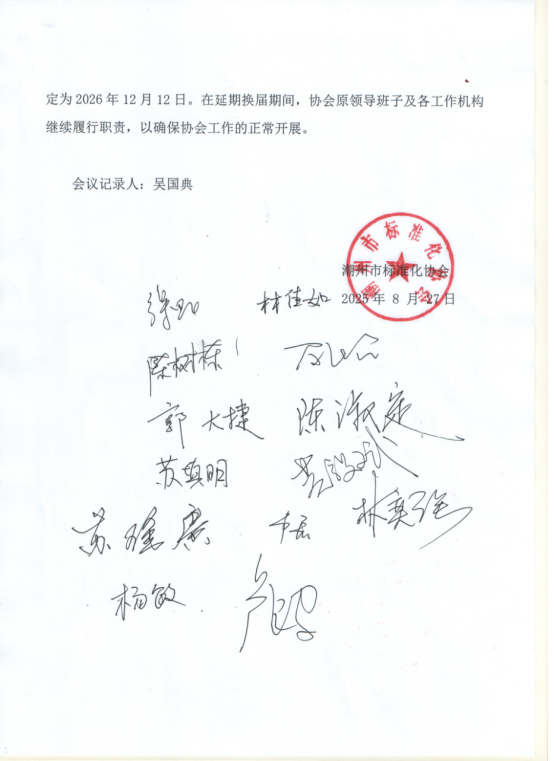 定为 2026 年 12 月 12 日。在延期换届期间，协会原领导班子及各工作机构
继续履行职责，以确保协会工作的正常开展。
会议记录人：吴国典
潮州市标准化协会
潮州市标准化协会
2025 年 8 月 27 日
林佳如
陈树栋
郭大捷 陈淑定
苏真明
苏
杨敏